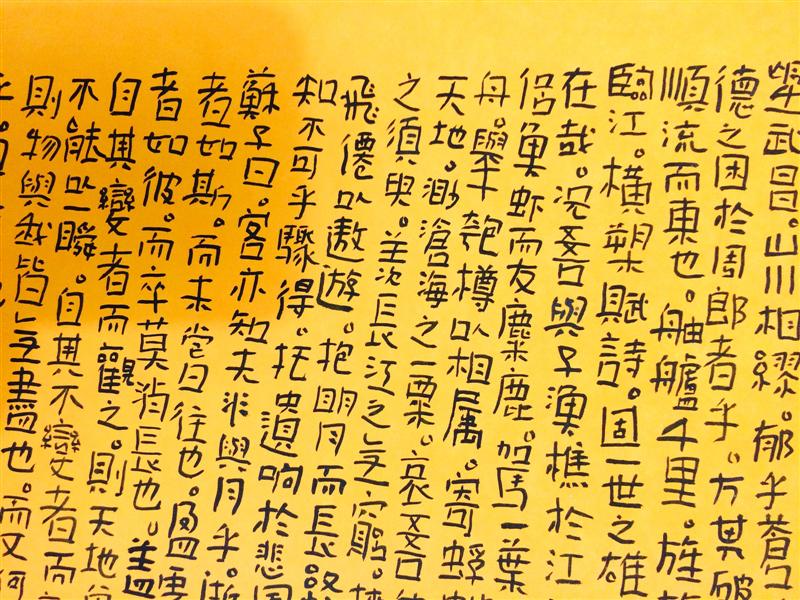 望武昌。山川相繆。郁乎蒼
德之困於周郎者乎。方其破
順流而東也。舳艫千里。旌旗
臨江。橫槊賦詩。固一世之雄
在哉。況吾與子漁樵於江
侶魚虾而友麋鹿。駕一葉
舟。舉匏樽以相屬。寄蜉
天地。渺滄海之一粟。哀吾
之須臾。羨長江之无窮。挾
飛僊以遨遊。抱明月而長
知不可乎驟得。托遺响於悲風
蘇子曰。客亦知夫水與月乎。逝
者如斯。而未嘗往也。盈虛
者如彼。而卒莫消長也。蓋
自其變者而觀之。則天地
不能以一瞬。自其不變者而
則物與我皆无盡也。而又何